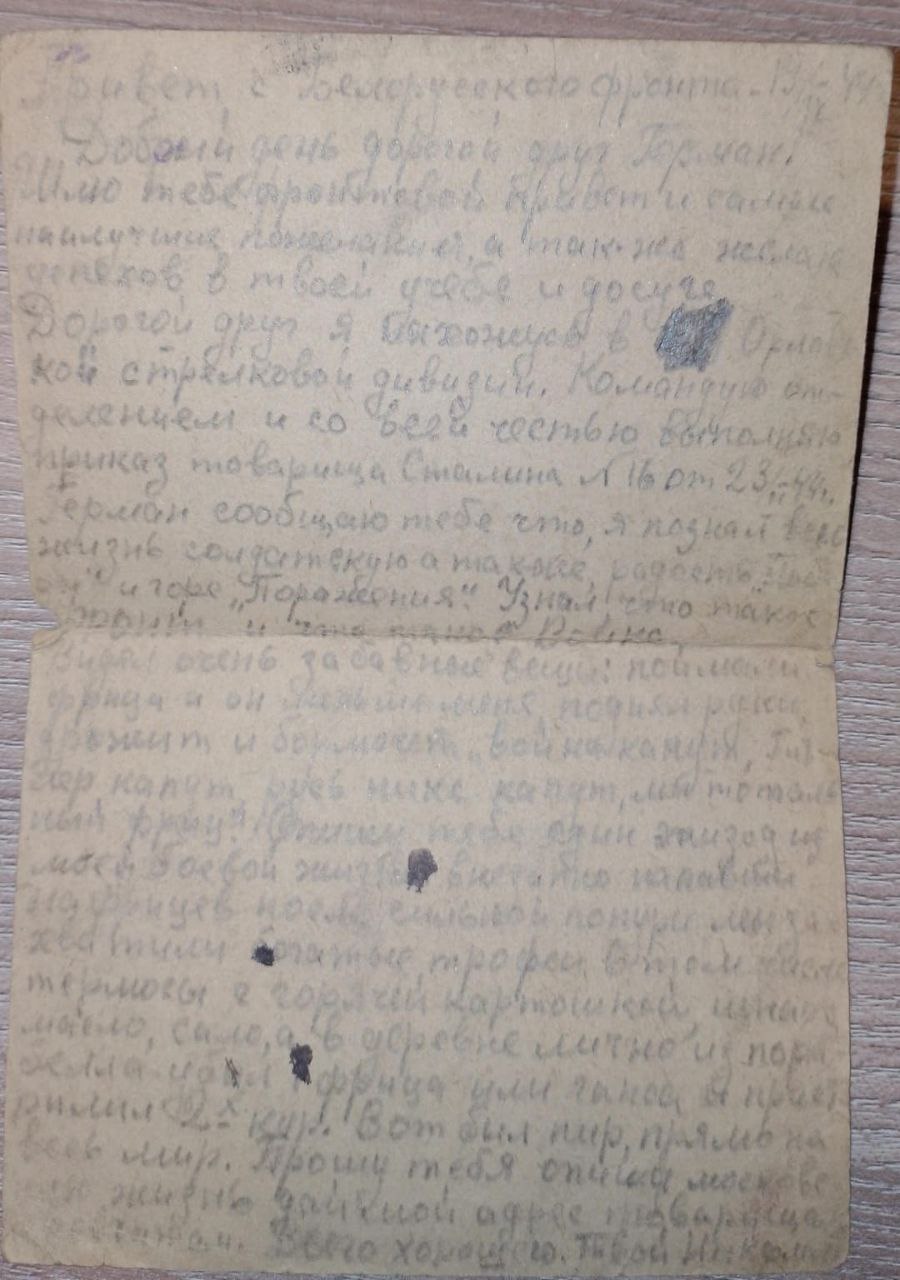 Привет с Белорусского фронта. 19/IV-44
Добрый день дорогой друг Герман!
Шлю тебе фронтовой привет и самые
наилучшие пожелания, а так-же желаю
успехов в твоей учебе и досуге
Дорогой друг я нахожусь в Орловс
кой стрелковой дивизии. Командую от-
делением и со всей честью выполняю
приказ товарища Сталина N 16 от 23/II-44г.
Герман сообщаю тебе что, я познал всю
жизнь солдатскую а также, радость „Побе
ды" и горе „Поражения". Узнал что такое
Фронт и что такое Война.
Видал очень забавные вещи: поймали
фрица и он меня подняв руки,
дрожит и бормочет „война капут, Гит-
лер капут, русь никс капут, мы тоталь
ный фриц". Опишу тебе один эпизод из
моей боевой жизни внезапно напали
на фрицев после сильной мы за-
хватили богатые трофеи в том числе
термосы с горячей картошкой,
масло, сало, а в деревне лично из пара-
белла убил фрица или ганса и
2х кур. Вот был пир, прямо на
весь мир. Прошу тебя опиши московс
кую жизнь дай мой адрес товарищам
Всего хорошего. Твой